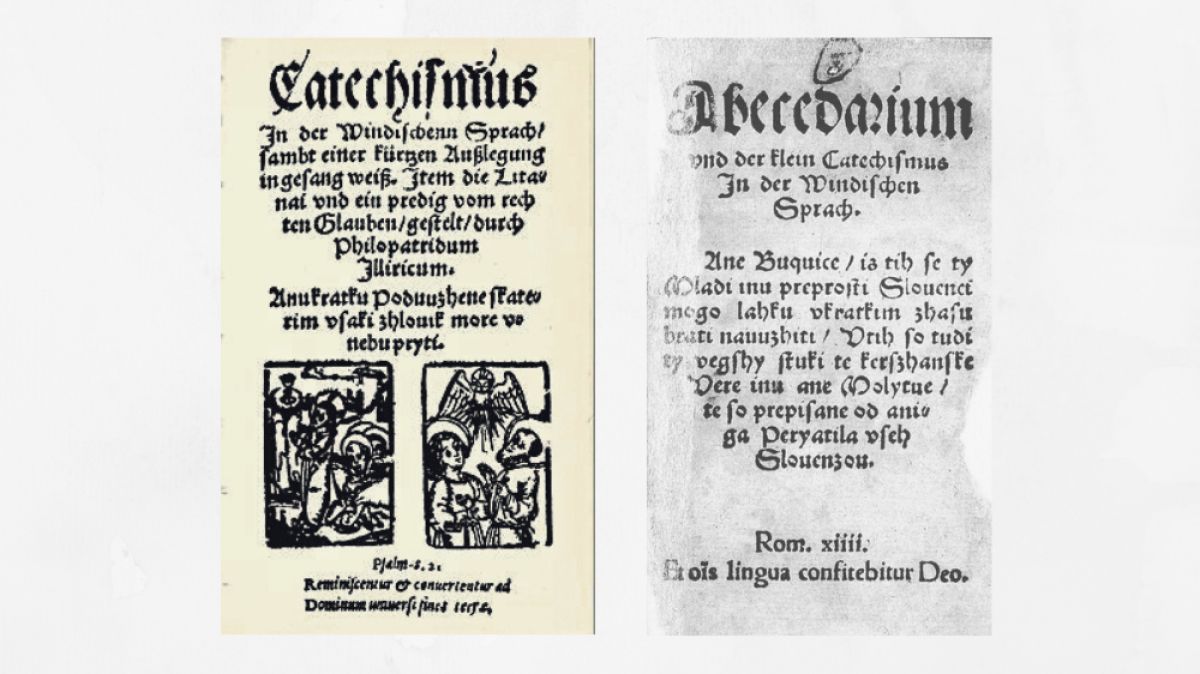 Catechismus
In der Windischenn Sprach/
sambt einer kürtzen Außlegung
in gesang weiß. Item die Lita-
nai vnd ein predig vom rech
ten Glauben/gestelt/durch
Philopatridum
Illiricum.
Anu kratku Poduuzhene skate-
rim vsaki zhlouik more vo
nebu pryti.
Psalm
Reminiscentur & conuertentur ad
Dominum vniuersi fines terræ.
Abecedarium
vnd der klein Catechismus
In der Windischen
Sprach.
Ane Buquice / is tih se ty
Mladi inu preprosti Slouenci
mogo lahku vkratkim zhasu
brati nauuzhiti / Vtih so tudi
ty vegshy stuki te kerszhanske
Vere inu ane Molytue /
te so prepisane od ani-
ga Peryatila vseh
Slouenzou.
Rom. xiiii.
Et oīs lingua confitebitur Deo.